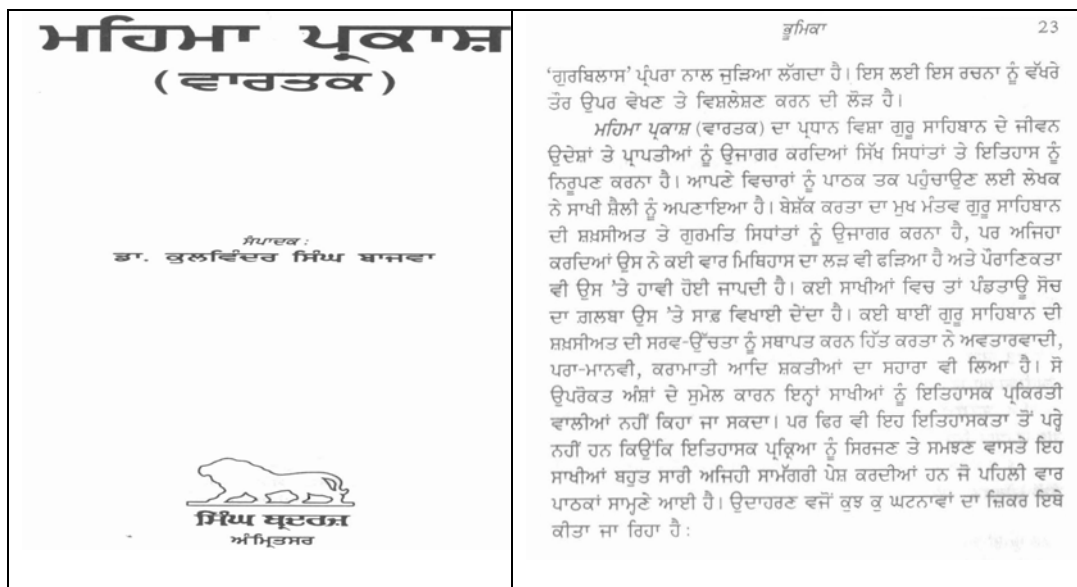 ਮਹਿਮਾ ਪ੍ਰਕਾਸ਼
(ਵਾਰਤਕ)
ਸੰਪਾਦਕ :
ਡਾ. ਕੁਲਵਿੰਦਰ ਸਿੰਘ ਬਾਜਵਾ
ਸਿੰਘ ਬ੍ਰਦਰਜ਼
ਅੰਮ੍ਰਿਤਸਰ
ਭੂਮਿਕਾ 23
'ਗੁਰਬਿਲਾਸ' ਪ੍ਰੰਪਰਾ ਨਾਲ ਜੁੜਿਆ ਲੱਗਦਾ ਹੈ। ਇਸ ਲਈ ਇਸ ਰਚਨਾ ਨੂੰ ਵੱਖਰੇ
ਤੌਰ ਉਪਰ ਵੇਖਣ ਤੇ ਵਿਸ਼ਲੇਸ਼ਣ ਕਰਨ ਦੀ ਲੋੜ ਹੈ।
ਮਹਿਮਾ ਪ੍ਰਕਾਸ਼ (ਵਾਰਤਕ) ਦਾ ਪ੍ਰਧਾਨ ਵਿਸ਼ਾ ਗੁਰੂ ਸਾਹਿਬਾਨ ਦੇ ਜੀਵਨ
ਉਦੇਸ਼ਾਂ ਤੇ ਪ੍ਰਾਪਤੀਆਂ ਨੂੰ ਉਜਾਗਰ ਕਰਦਿਆਂ ਸਿੱਖ ਸਿਧਾਂਤਾਂ ਤੇ ਇਤਿਹਾਸ ਨੂੰ
ਨਿਰੂਪਣ ਕਰਨਾ ਹੈ। ਆਪਣੇ ਵਿਚਾਰਾਂ ਨੂੰ ਪਾਠਕ ਤਕ ਪਹੁੰਚਾਉਣ ਲਈ ਲੇਖਕ
ਨੇ ਸਾਖੀ ਸ਼ੈਲੀ ਨੂੰ ਅਪਣਾਇਆ ਹੈ। ਬੇਸ਼ੱਕ ਕਰਤਾ ਦਾ ਮੁਖ ਮੰਤਵ ਗੁਰੂ ਸਾਹਿਬਾਨ
ਦੀ ਸ਼ਖ਼ਸੀਅਤ ਤੇ ਗੁਰਮਤਿ ਸਿਧਾਂਤਾਂ ਨੂੰ ਉਜਾਗਰ ਕਰਨਾ ਹੈ, ਪਰ ਅਜਿਹਾ
ਕਰਦਿਆਂ ਉਸ ਨੇ ਕਈ ਵਾਰ ਮਿਥਿਹਾਸ ਦਾ ਲੜ ਵੀ ਫੜਿਆ ਹੈ ਅਤੇ ਪੌਰਾਣਿਕਤਾ
ਵੀ ਉਸ 'ਤੇ ਹਾਵੀ ਹੋਈ ਜਾਪਦੀ ਹੈ। ਕਈ ਸਾਖੀਆਂ ਵਿਚ ਤਾਂ ਪੰਡਤਾਊ ਸੋਚ
ਦਾ ਗ਼ਲਬਾ ਉਸ 'ਤੇ ਸਾਫ਼ ਵਿਖਾਈ ਦੇਂਦਾ ਹੈ। ਕਈ ਥਾਈਂ ਗੁਰੂ ਸਾਹਿਬਾਨ ਦੀ
ਸ਼ਖ਼ਸੀਅਤ ਦੀ ਸਰਵ-ਉੱਚਤਾ ਨੂੰ ਸਥਾਪਤ ਕਰਨ ਹਿੱਤ ਕਰਤਾ ਨੇ ਅਵਤਾਰਵਾਦੀ,
ਪਰਾ-ਮਾਨਵੀ, ਕਰਾਮਾਤੀ ਆਦਿ ਸ਼ਕਤੀਆਂ ਦਾ ਸਹਾਰਾ ਵੀ ਲਿਆ ਹੈ। ਸੋ
ਉਪਰੋਕਤ ਅੰਸ਼ਾਂ ਦੇ ਸੁਮੇਲ ਕਾਰਨ ਇਨ੍ਹਾਂ ਸਾਖੀਆਂ ਨੂੰ ਇਤਿਹਾਸਕ ਪ੍ਰਕਿਰਤੀ
ਵਾਲੀਆਂ ਨਹੀਂ ਕਿਹਾ ਜਾ ਸਕਦਾ। ਪਰ ਫਿਰ ਵੀ ਇਹ ਇਤਿਹਾਸਕਤਾ ਤੋਂ ਪਰ੍ਹੇ
ਨਹੀਂ ਹਨ ਕਿਉਂਕਿ ਇਤਿਹਾਸਕ ਪ੍ਰਕ੍ਰਿਆ ਨੂੰ ਸਿਰਜਣ ਤੇ ਸਮਝਣ ਵਾਸਤੇ ਇਹ
ਸਾਖੀਆਂ ਬਹੁਤ ਸਾਰੀ ਅਜਿਹੀ ਸਾਮੱਗਰੀ ਪੇਸ਼ ਕਰਦੀਆਂ ਹਨ ਜੋ ਪਹਿਲੀ ਵਾਰ
ਪਾਠਕਾਂ ਸਾਮ੍ਹਣੇ ਆਈ ਹੈ। ਉਦਾਹਰਣ ਵਜੋਂ ਕੁਝ ਕੁ ਘਟਨਾਵਾਂ ਦਾ ਜ਼ਿਕਰ ਇਥੇ
ਕੀਤਾ ਜਾ ਰਿਹਾ ਹੈ :